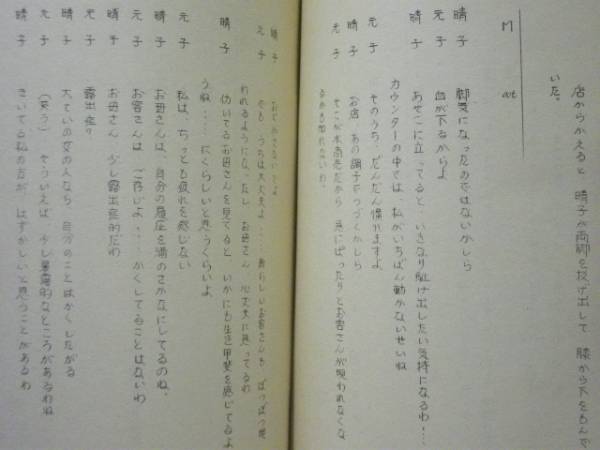 店からかえると 晴子が両脚を投げ出して 膝から下をもんで
いた。
M at
晴子 脚気になったのではないかしら
元子 血が下るからよ
晴子 あそこに立ってると、いきなり駈け出したい気持になるわ…
カウンターの中では、私がいちばん動かないせいね
元子 そのうち、だんだん慣れますよ
晴子 お店、あの調子でつづくかしら
元子 そこが水商売だから 急にぱったりとお客さんが現われなくな
るかも知れないわ。
晴子 おどかさないでよ
元子 でも うちは大丈夫よ…… 新らしいお客さんも ぽつぽつ現
われるようになったし お母さん 心丈夫に思ってるわ
働いてるお母さんを見てると いかにも生き甲斐を感じてるよ
うね…… にくらしいと思うくらいよ
元子 私は、ちっとも疲れを感じない
晴子 お母さんは、自分の履歴を酒のさかなにしてるのね、
元子 お客さんは、ご存じよ… かくしてることはないわ
晴子 お母さん 少し露出症的だわ
元子 露出症？
晴子 大ていの女の人なら 自分のことはかくしたがる
元子 （笑う） そういえば、少し暴露的なところがあるわね
晴子 きいてる私の方が、はずかしいと思うことがあるわ